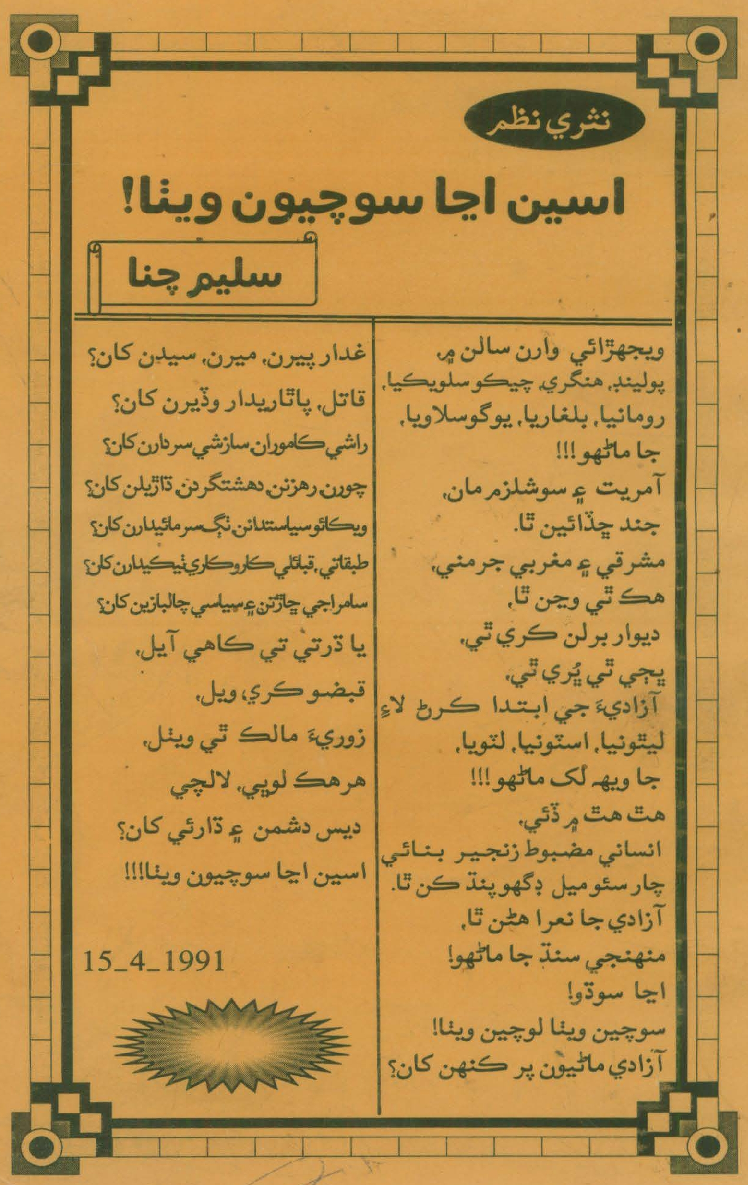 نثري نظم
اسين اڃا سوچيون ويٺا!
سليم چنا
ويجهڙائي وارن سالن ۾،
پولينڊ، هنگري، چيڪو سلويڪيا،
رومانيا، بلغاريا، يوگوسلاويا،
جا ماڻهو!!!
آمريت ۽ سوشلزم مان،
جند ڇڏائين ٿا.
مشرقي ۽ مغربي جرمني،
هڪ ٿي وڃن ٿا،
ديوار برلن ڪري ٿي،
ڀڄي ٿي ڀُري ٿي،
آزاديءَ جي ابتدا ڪرڻ لاءِ
ليٿونيا، اسٽونيا، لٽويا،
جا ويهه لک ماڻهو!!!
هٿ هٿ ۾ ڏئي،
انساني مضبوط زنجير بنائي
چار سئو ميل ڊگهو پنڌ ڪن ٿا.
آزادي جا نعرا هڻن ٿا،
منهنجي سنڌ جا ماڻهو!
اڃا سوڌو!
سوچين ويٺا لوچين ويٺا!
آزادي ماڻيون پر ڪنهن کان؟
غدار پيرن، ميرن، سيدن کان؟
قاتل، پاٿاريدار وڏيرن کان؟
راشي ڪامورن، سازشي سردارن کان؟
چورن، رهزنن، دهشتگردن، ڌاڙيلن کان؟
ويڪائو سياستدانن، ٺڳ سرمائيدارن کان؟
طبقاتي، قبائلي ڪاروڪاري ٺيڪيدارن کان؟
سامراجي چاڙتن ۽ سياسي چالبازين کان؟
يا ڌرتي تي ڪاهي آيل،
قبضو ڪري ويل،
زوريءَ مالڪ ٿي ويٺل،
هر هڪ لوڀي، لالچي
ديس دشمن ۽ ڌارئي کان؟
اسين اڃا سوچيون ويٺا!!!
15_4_1991